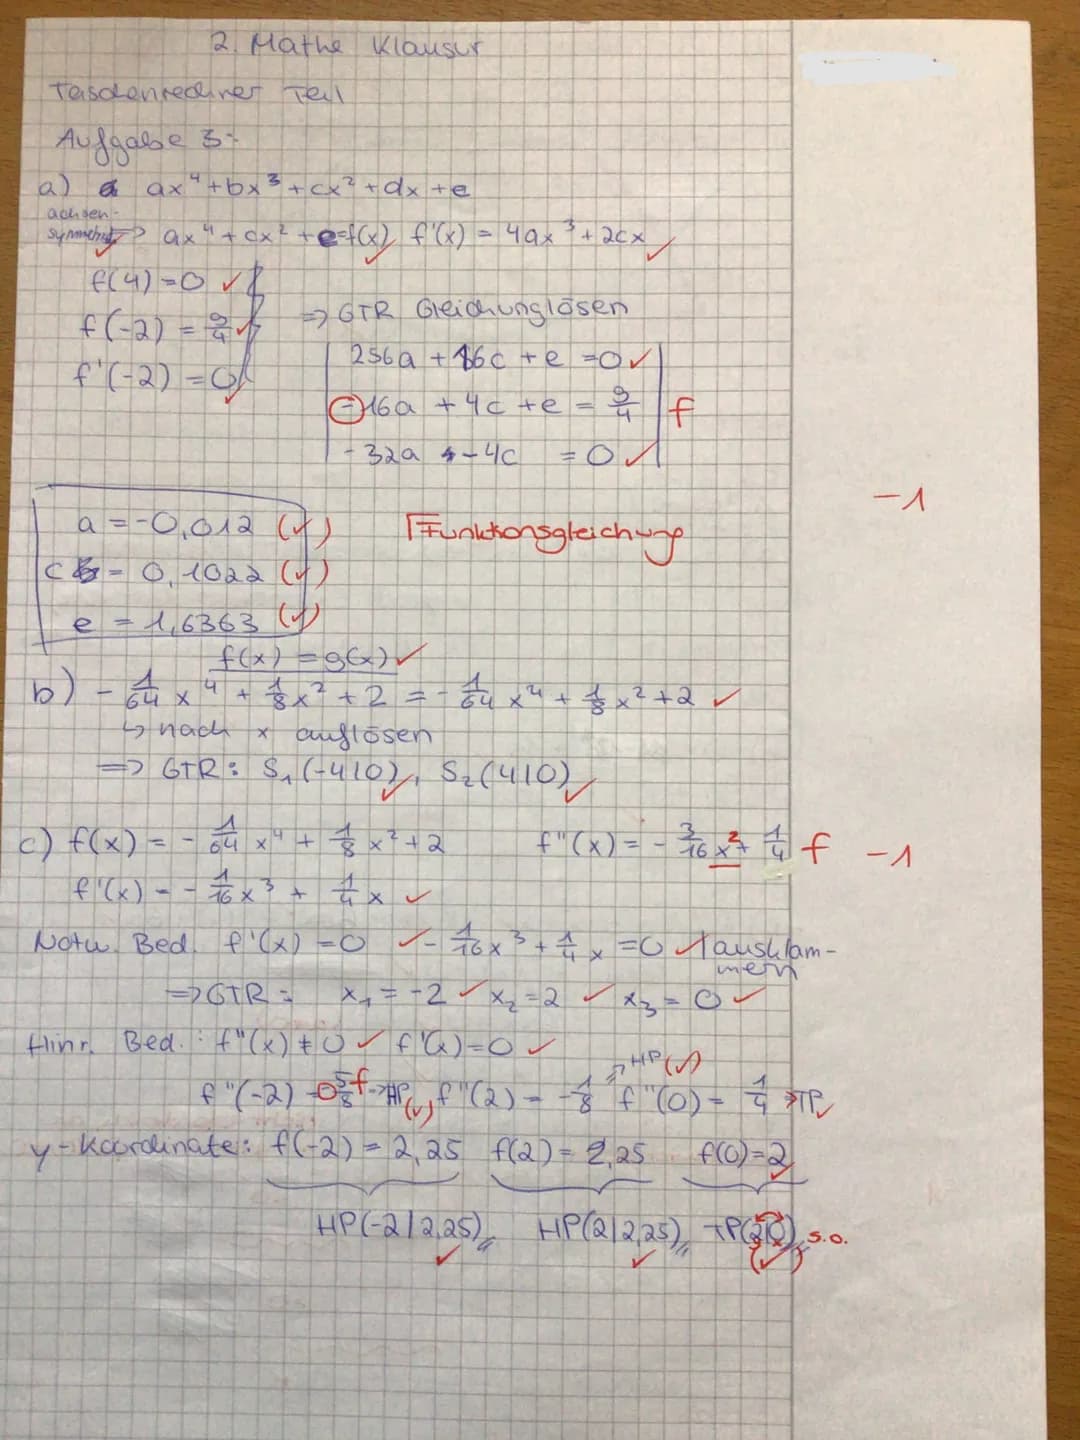 2. Mathe Klausur
Taschenrechner Teil
Aufgabe 3:
a) ax⁴+bx³+cx²+dx+e
achsen-
symmetrisch => ax⁴+cx²+e=f(x), f'(x) = 4ax³+2cx ✓
f(4)=0 ✓
f(-2) = 9/4 ✓ => GTR Gleichunglösen
f'(-2) = 0 ✓
256a + 16c + e = 0 ✓
-16a + 4c + e = 9/4 f
-32a - 4c = 0 ✓
-1
a = -0,012 (✓) Γ Funktionsgleichung
c = 0,1022 (✓)
e = 1,6363 (✓)
f(x) = g(x) ✓
b) - 1/64 x⁴ + 1/8 x² + 2 = - 1/64 x⁴ + 1/8 x² + 2 ✓
↳ nach x auflösen
=> GTR: S₁(-4|0) ✓, S₂(4|0) ✓
c) f(x) = - 1/64 x⁴ + 1/8 x² + 2 f''(x) = - 3/16 x² + 1/4 f -1
f'(x) = - 1/16 x³ + 1/4 x ✓
Notw. Bed. f'(x) = 0 ✓ - 1/16 x³ + 1/4 x = 0 ✓ | ausklam-
mern
=> GTR: x₁ = -2 ✓ x₂ = 2 ✓ x₃ = 0 ✓
Hinr. Bed.: f''(x) ≠ 0 ✓ f'(x) = 0 ✓
HP (✓)
f''(-2) = 5/8 f -> HP (✓), f''(2) = - 1/8 f''(0) = 1/4 -> TP ✓
y-Koordinate: f(-2) = 2,25 f(2) = 2,25 f(0) = 2 ✓
HP(-2|2,25) ✓ HP(2|2,25) ✓ TP(2|0) (✓) s.o.